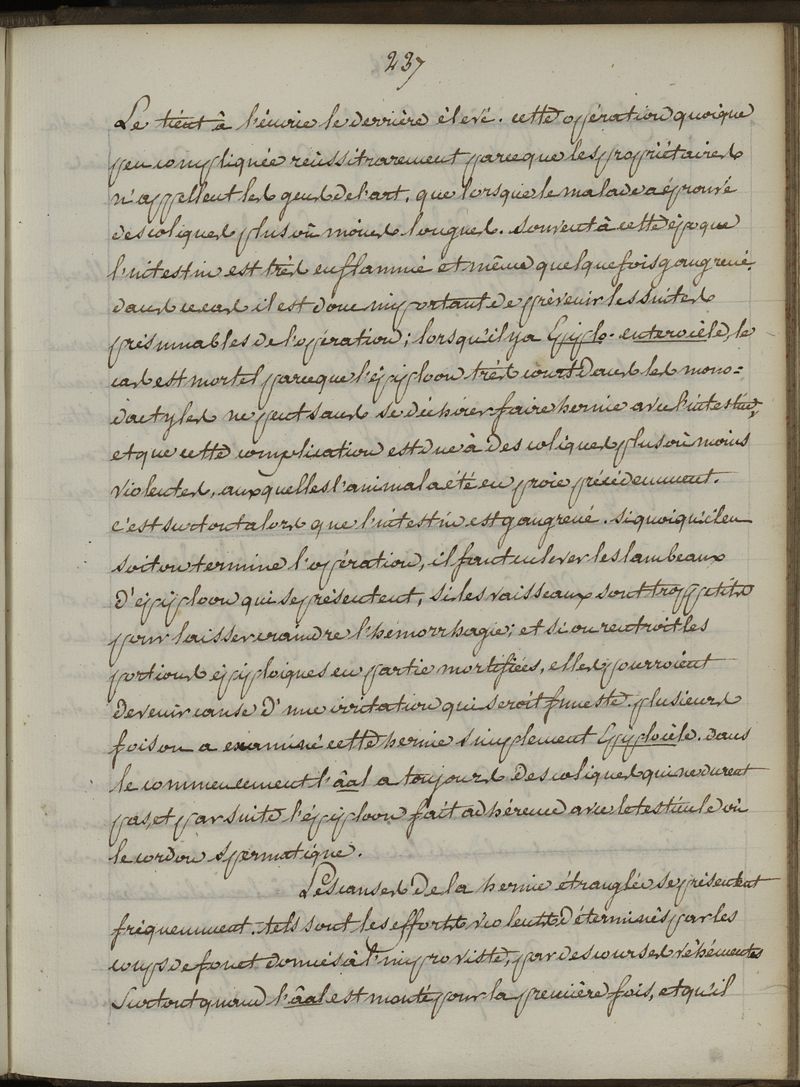 237
Le tient à l'écurie le derrière élevé. cette opération quoique
peu compliquée réussit rarement parceque les propriétaires
n'appellent les gens de l'art, que lorsque le malade a éprouvé
des coliques plus où moins longues. souvent à cette époque
l'intestin est très enflammé et même quelque fois gangrené.
dans ce cas il est donc important de prévenir les suites
présumables de l'opération; lorsqu'il y a Epiplo-enterocèle, le
cas est mortel parceque l'épiploon très court dans les mono=
dactyles ne peut sans se déchirer faire hernie avec l'intestin,
et que cette complication est due à des coliques plus où moins
violentes, auxquelles l'animal a été en proie précédemment.
c'est surtout alors que l'intestin est gangrené. si quoiqu'il en
soit on termine l'opération, il faut enlever les lambeaux
d'épiploon qui se présentent, si les vaisseaux sont trop petits
pour laisser craindre l'hémorrhagie; et si on rentroit les
portions épiploiques en partie mortifiées, elles pourroient
devenir cause d'une irritation qui seroit funeste. plusieurs
fois on a examiné cette hernie simplement Epiplocèle. dans
le commencement l'âal a toujours des coliques qui ne durent
pas, et par suite l'épiploon fait adhérence avec le testicule où
le cordon spermatique.
Les causes de la hernie étranglée se présentent
fréquemment. tels sont les efforts violents déterminés par les
coups de fouet donnés à l'improviste, par des courses véhémentes
surtout quand l'âal est monté pour la première fois, et qu'il